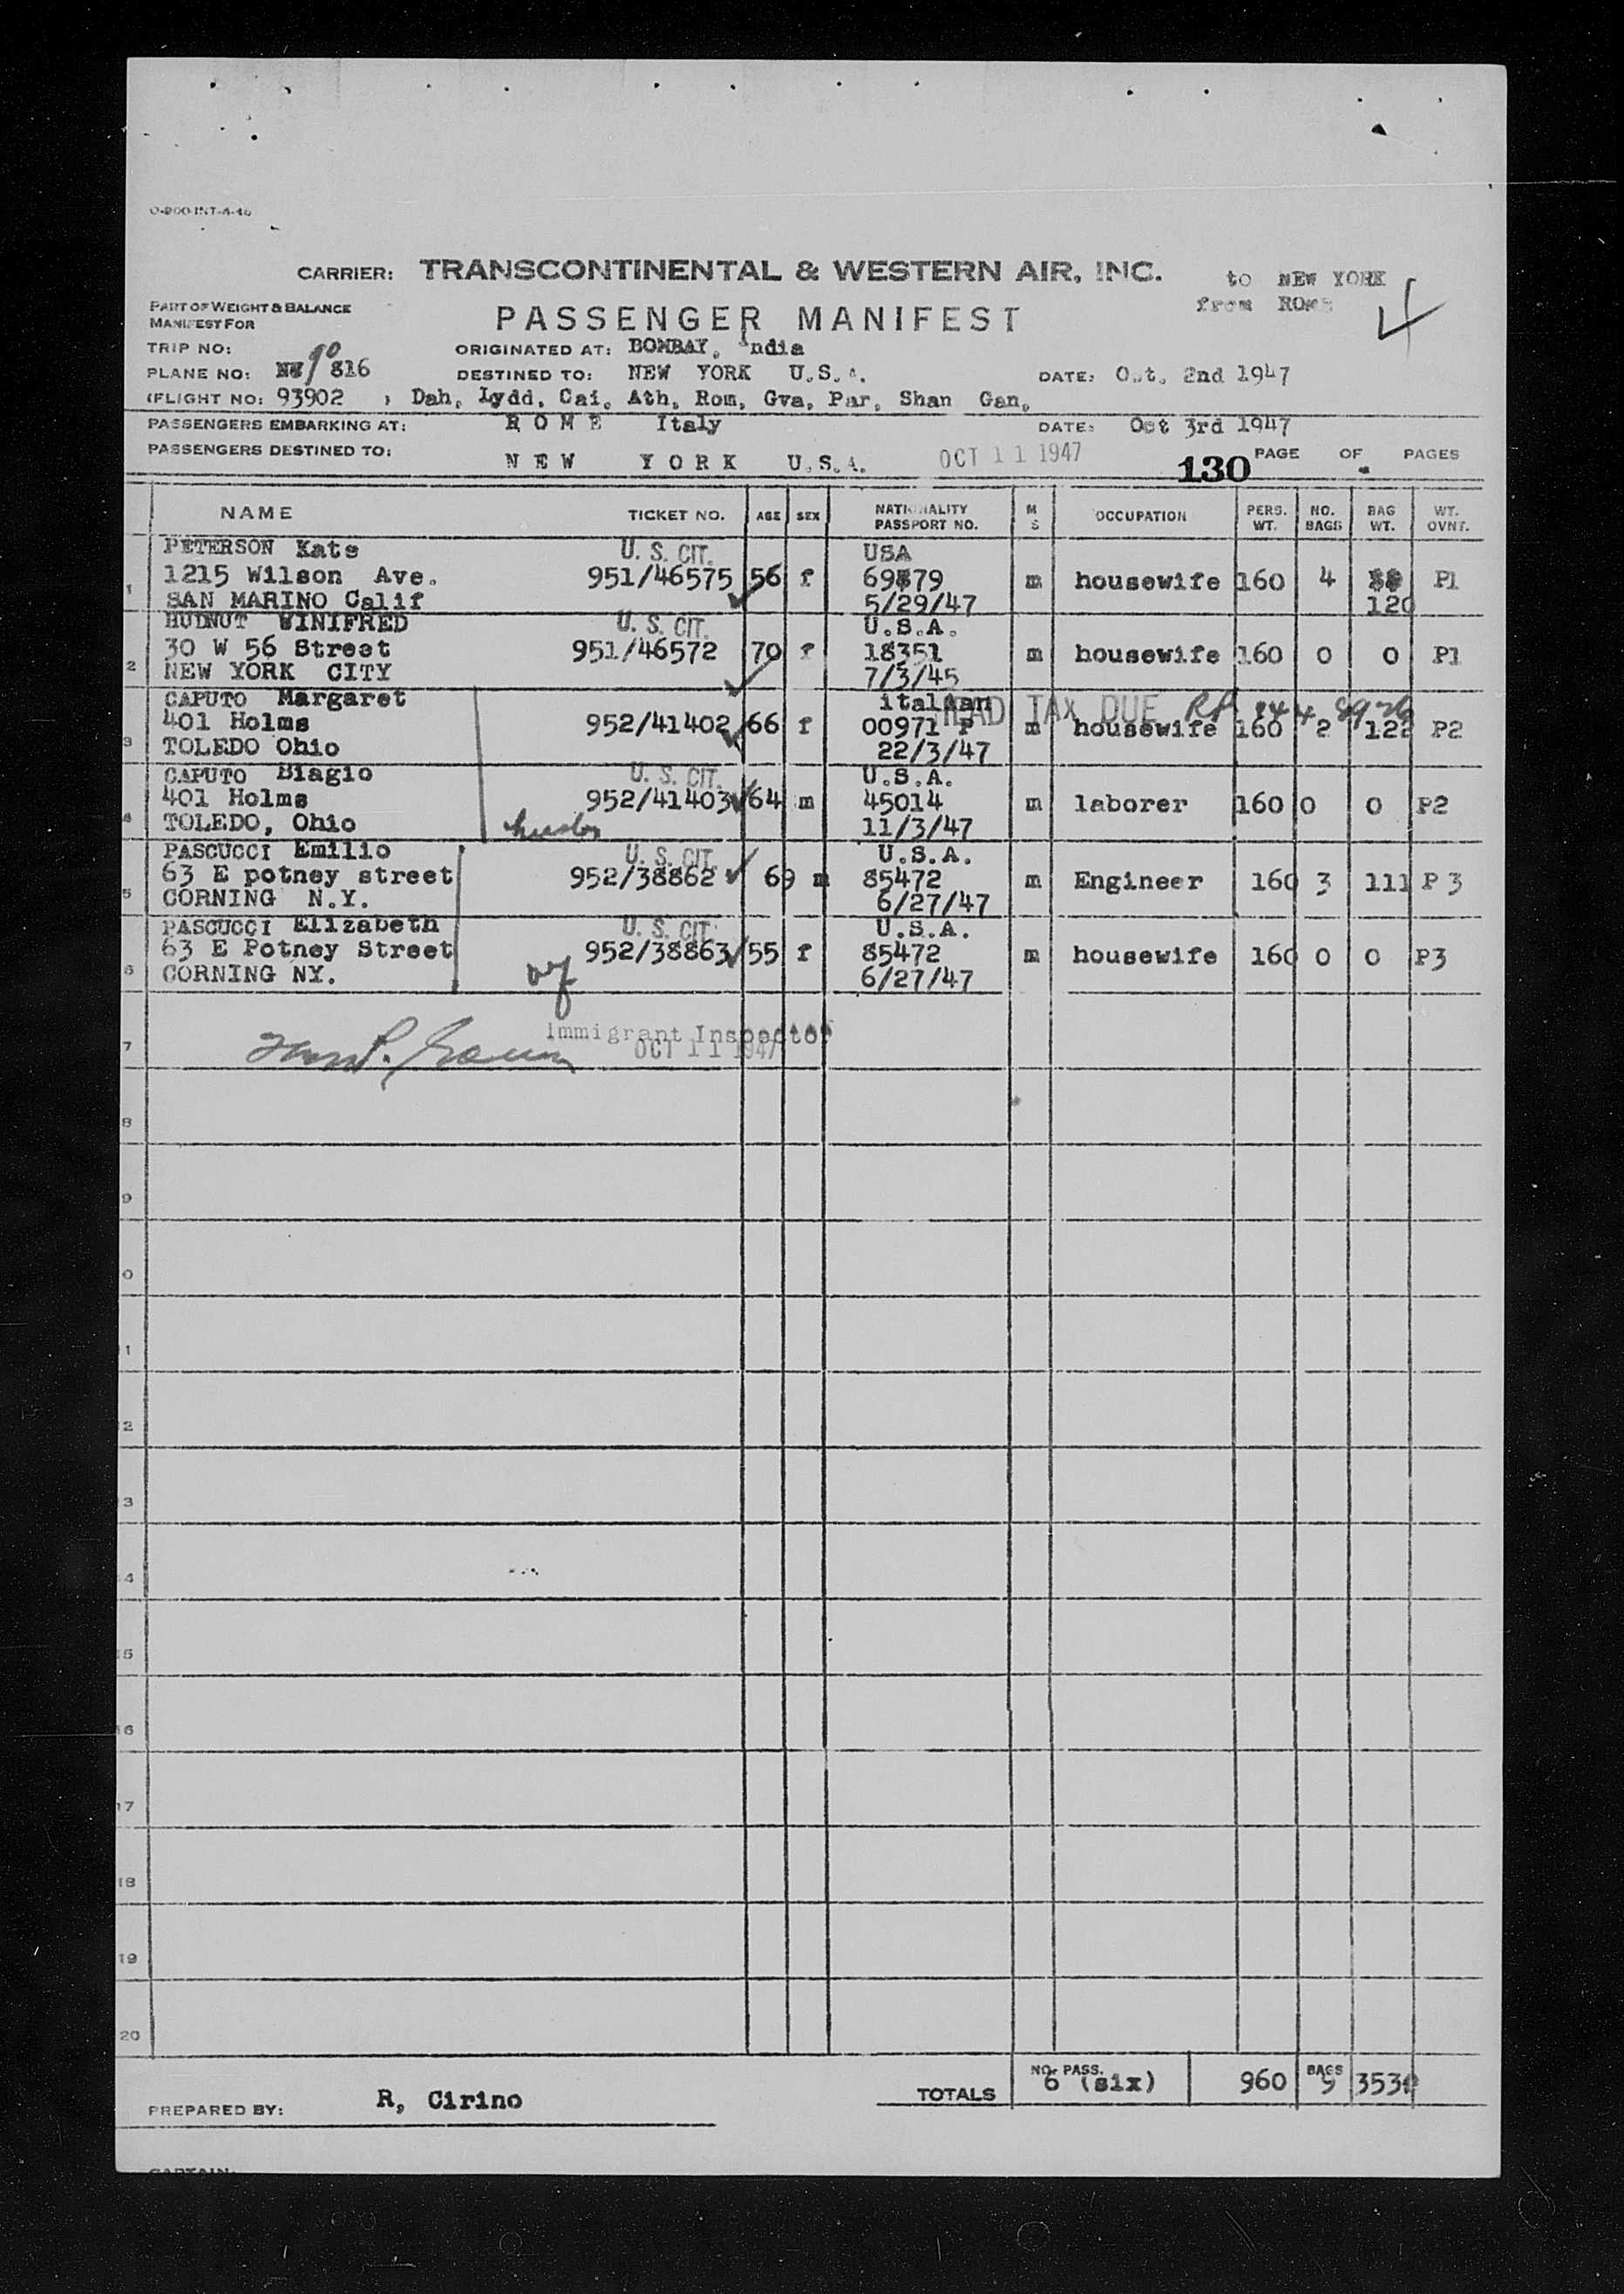 O-900-INT-A-46
CARRIER: TRANSCONTINENTAL & WESTERN AIR, INC.
to NEW YORK
from ROME
4
PART OF WEIGHT & BALANCE
MANIFEST FOR
PASSENGER MANIFEST
TRIP NO: 90
ORIGINATED AT: BOMBAY, India
PLANE NO: 816
DESTINED TO: NEW YORK U.S.A.
DATE: Oct. 2nd 1947
(FLIGHT NO: 93902 ) Dah, Lydd, Cai, Ath, Rom, Gva, Par, Shan Gan,
PASSENGERS EMBARKING AT: ROME Italy
DATE: Oct 3rd 1947
PASSENGERS DESTINED TO: NEW YORK U.S.A.
OCT 11 1947
130
PAGE OF PAGES
NAME TICKET NO. AGE SEX NATIONALITY PASSPORT NO. M S OCCUPATION PERS. WT. NO. BAGS BAG WT. WT. OVNT.
PETERSON Kate U. S. CIT. USA
1 1215 Wilson Ave. 951/46575 56 f 69879 m housewife 160 4 P1
SAN MARINO Calif 5/29/47 120
HUDNUT WINIFRED U. S. CIT. U.S.A.
30 W 56 Street 951/46572 70 f 18351 m housewife 160 0 0 P1
2 NEW YORK CITY 7/3/45
CAPUTO Margaret italian HEAD TAX DUE
401 Holms 952/41402 66 f 00971 P m housewife 160 2 122 P2
3 TOLEDO Ohio 22/3/47
CAPUTO Biagio U. S. CIT. U.S.A.
401 Holms 952/41403 64 m 45014 m laborer 160 0 0 P2
4 TOLEDO, Ohio 11/3/47
PASCUCCI Emilio U. S. CIT. U.S.A.
63 E potney street 952/38862 69 m 85472 m Engineer 160 3 111 P3
5 CORNING N.Y. 6/27/47
PASCUCCI Elizabeth U. S. CIT. U.S.A.
63 E Potney Street 952/38863 55 f 85472 m housewife 160 0 0 P3
6 CORNING NY. 6/27/47
Immigrant Inspector
7 OCT 11 1947
8
9
0
1
2
3
4
5
16
17
18
19
20
TOTALS NO. PASS. 6 (six) 960 BAGS 9 353
PREPARED BY: R, Cirino
CAPTAIN: